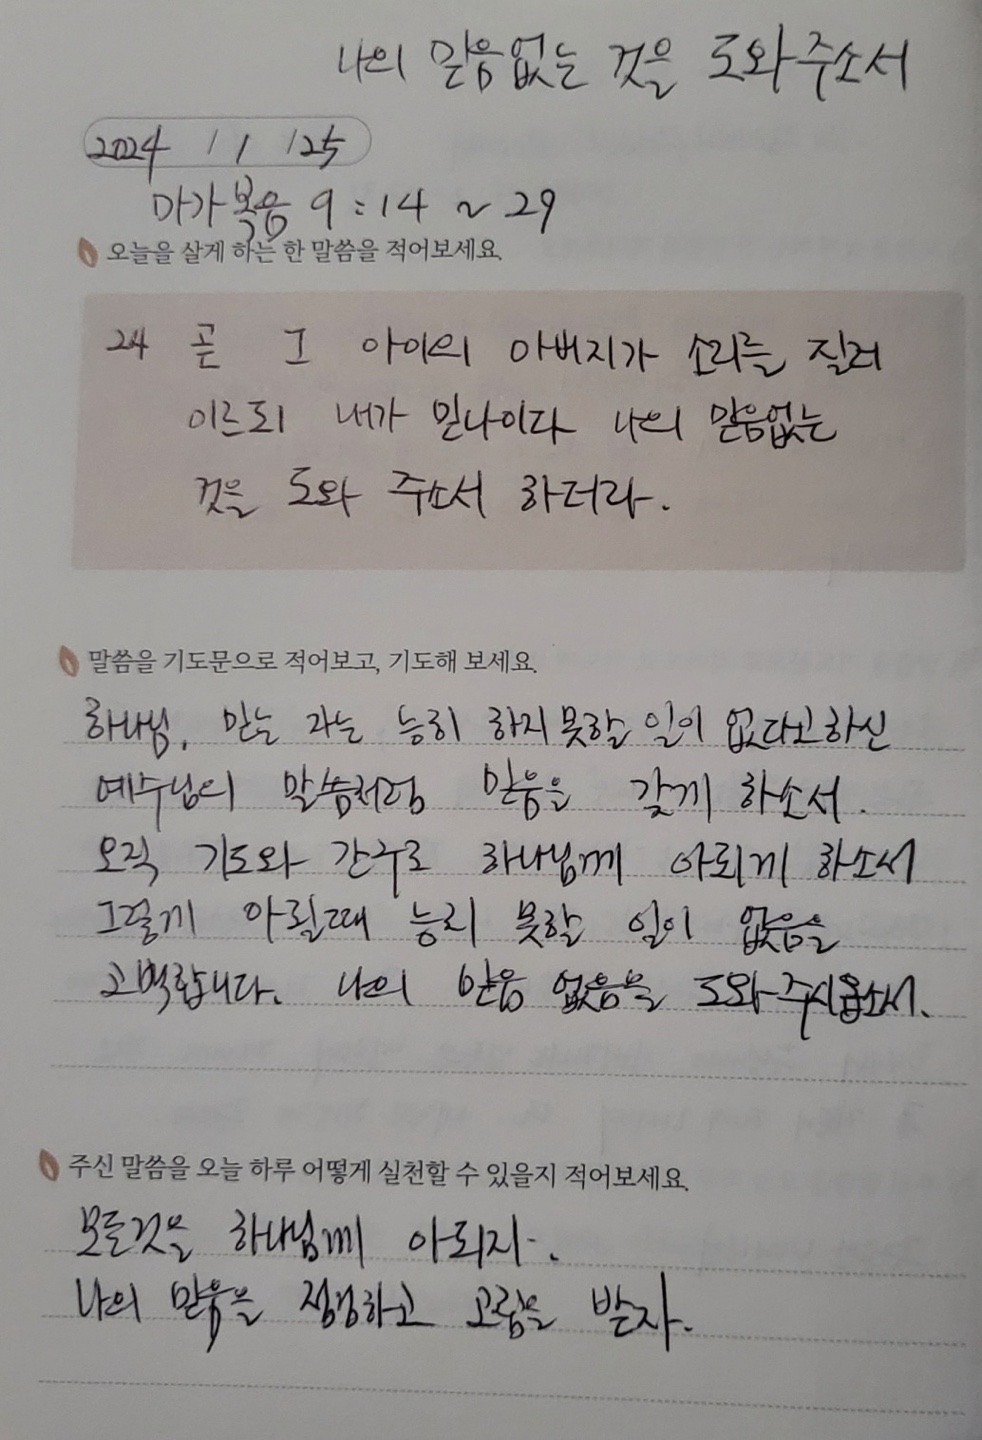 나의 믿음없는 것을 도와주소서
2024 / 1 / 25
마가복음 9:14 ~ 29
오늘을 살게 하는 한 말씀을 적어보세요.
24 곧 그 아이의 아버지가 소리를 질러
이르되 내가 믿나이다 나의 믿음없는
것을 도와 주소서 하더라.
말씀을 기도문으로 적어보고, 기도해 보세요.
하나님, 믿는 자는 능히 하지못할 일이 없다고하신
예수님의 말씀처럼 믿음을 갖게 하소서.
오직 기도와 간구로 하나님께 아뢰게 하소서
그렇게 아뢸때 능히 못할 일이 없음을
고백합니다. 나의 믿음 없음을 도와주시옵소서.
주신 말씀을 오늘 하루 어떻게 실천할 수 있을지 적어보세요.
모든것을 하나님께 아뢰자.
나의 믿음을 점검하고 고침을 받자.